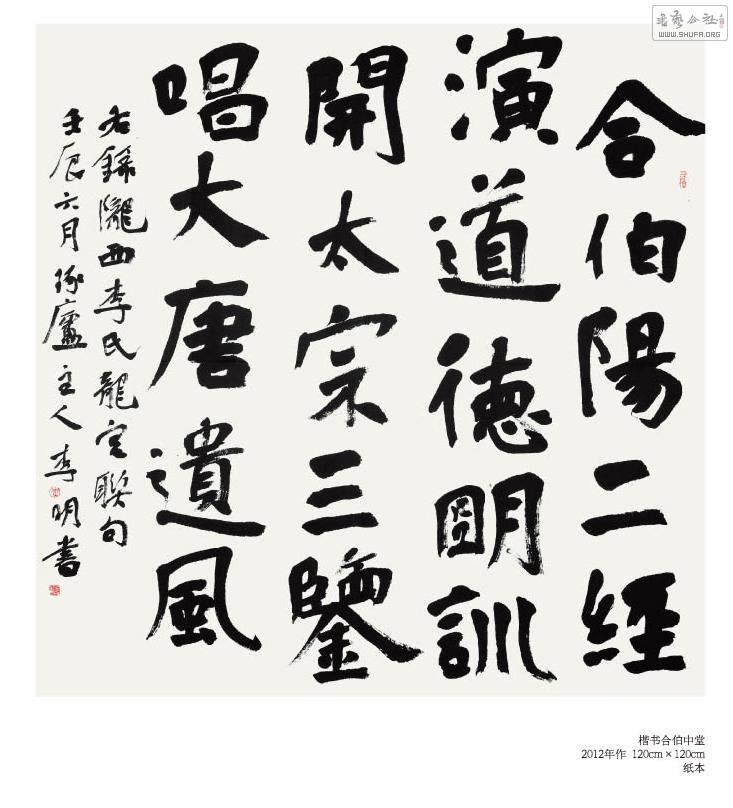 書藝公社
WWW.SHUFA.ORG
合伯陽二經
演道德朙訓
開太宗三鑒
唱大唐遺風
右錄隴西李氏龍宮聯句
壬辰六月琢廬主人李明書
楷书合伯中堂
2012年作 120cm×120cm
纸本